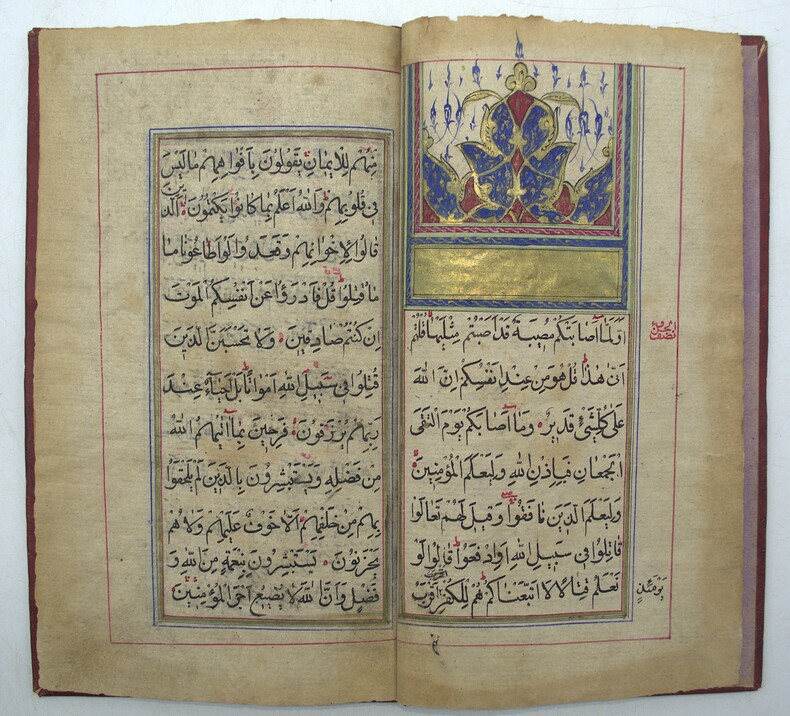 اَوَلَمَّا اَصَابَتْكُمْ مُصِيبَةٌ قَدْ اَصَبْتُمْ مِثْلَيْهَا قُلْتُمْ
اَنّٰ هٰذَا قُلْ هُوَ مِنْ عِنْدِ اَنْفُسِكُمْ اِنَّ اللّٰهَ
عَلٰى كُلِّ شَيْءٍ قَدِيرٌ وَمَا اَصَابَكُمْ يَوْمَ الْتَقَى
الْجَمْعَانِ فَبِاِذْنِ اللّٰهِ وَلِيَعْلَمَ الْمُؤْمِنِينَ
وَلِيَعْلَمَ الَّذِينَ نَافَقُوا وَقِيلَ لَهُمْ تَعَالَوْا
قَاتِلُوا فِي سَبِيلِ اللّٰهِ اَوِ ادْفَعُوا قَالُوا لَوْ
نَعْلَمُ قِتَالًا لَا اتَّبَعْنَاكُمْ هُمْ لِلْكُفْرِ اَقْرَبُ
يَوْمَئِذٍ
مِنْهُمْ لِلْاِيمَانِ يَقُولُونَ بِاَفْوَاهِهِمْ مَا لَيْسَ
فِي قُلُوبِهِمْ وَاللّٰهُ اَعْلَمُ بِمَا كَانُوا يَكْتُمُونَ اَلَّذِينَ
قَالُوا لِاِخْوَانِهِمْ وَقَعَدُوا لَوْ اَطَاعُونَا مَا
مَا قُتِلُوا قُلْ فَادْرَؤُا عَنْ اَنْفُسِكُمُ الْمَوْتَ
اِنْ كُنْتُمْ صَادِقِينَ وَلَا تَحْسَبَنَّ الَّذِينَ
قُتِلُوا فِي سَبِيلِ اللّٰهِ اَمْوَاتًا بَلْ اَحْيَاءٌ عِنْدَ
رَبِّهِمْ يُرْزَقُونَ فَرِحِينَ بِمَا اٰتٰيهُمُ اللّٰهُ
مِنْ فَضْلِهِ وَيَسْتَبْشِرُونَ بِالَّذِينَ لَمْ يَلْحَقُوا
بِهِمْ مِنْ خَلْفِهِمْ اَلَّا خَوْفٌ عَلَيْهِمْ وَلَا هُمْ
يَحْزَنُونَ يَسْتَبْشِرُونَ بِنِعْمَةٍ مِنَ اللّٰهِ وَ
فَضْلٍ وَاَنَّ اللّٰهَ لَا يُضِيعُ اَجْرَ الْمُؤْمِنِينَ